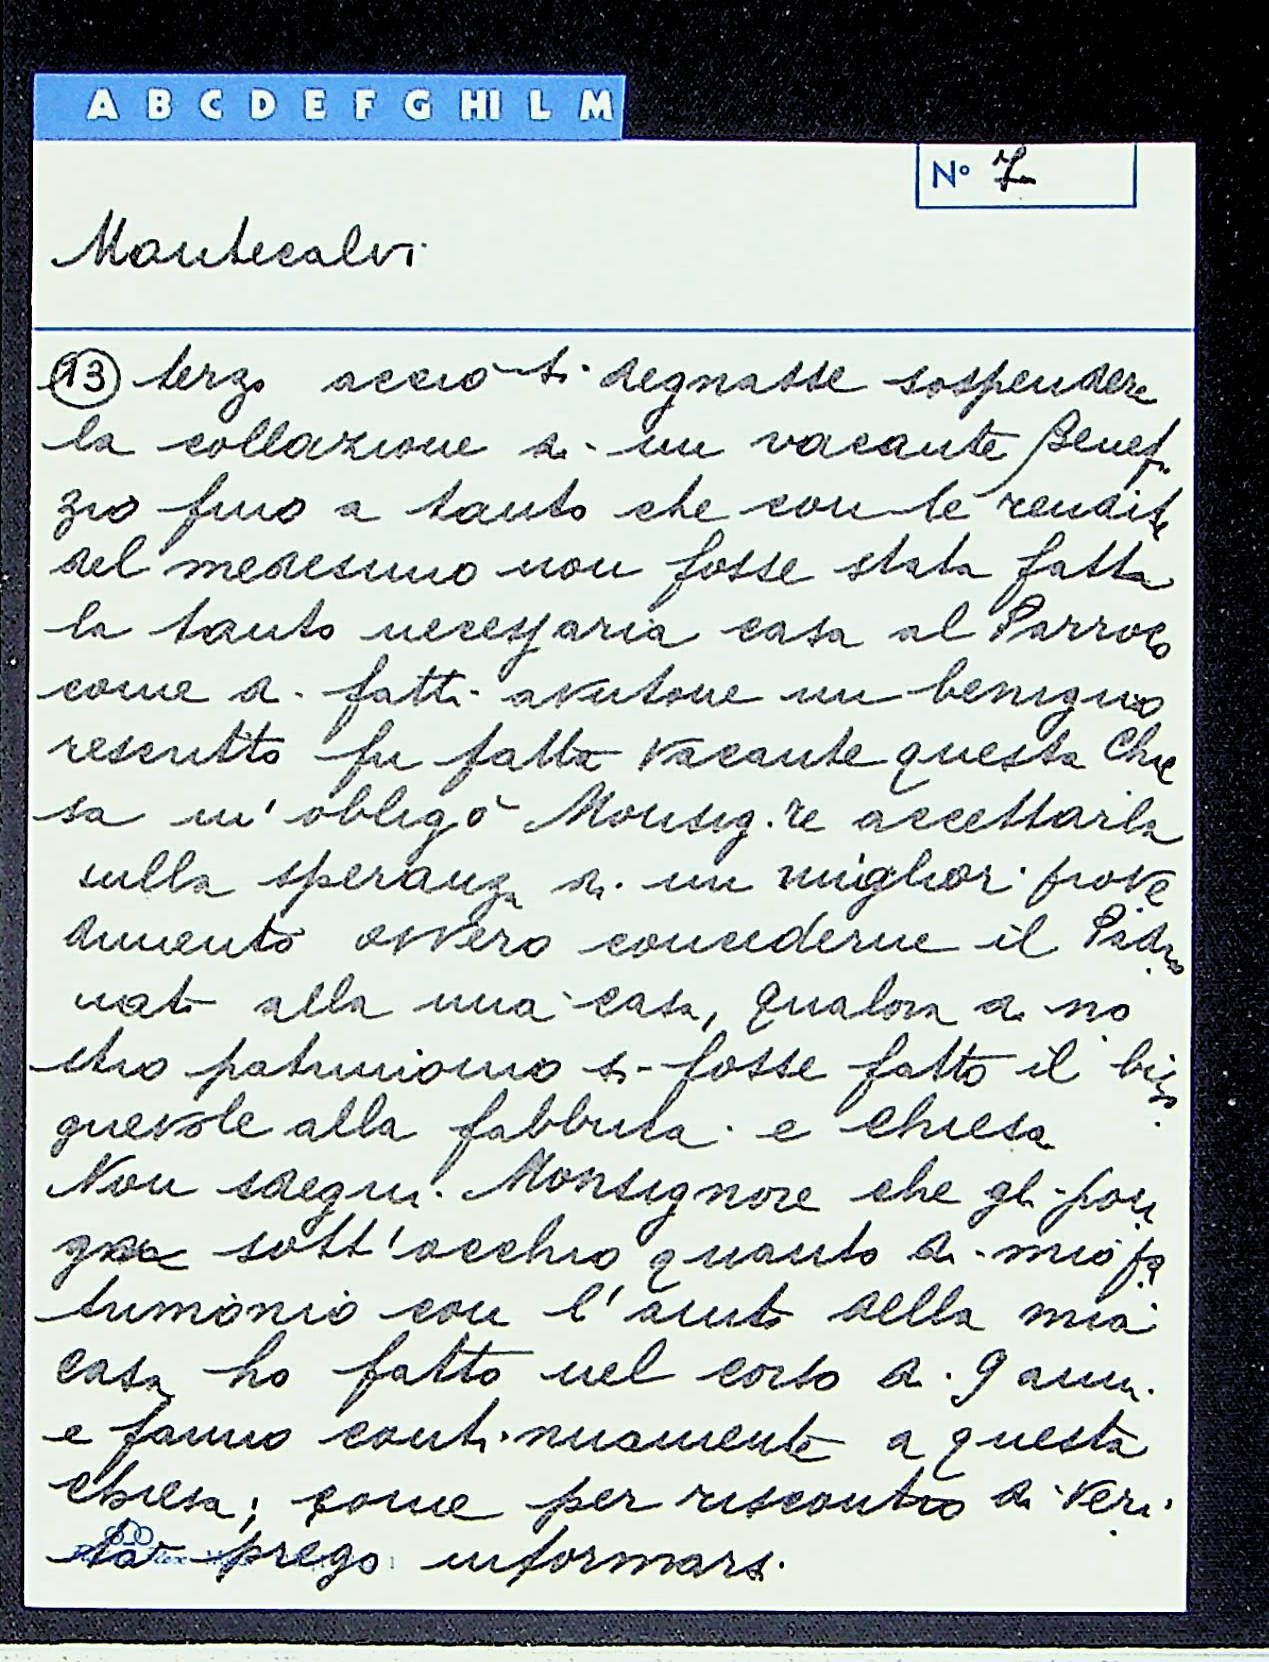 A B C D E F G HI L M
N° 7
Montecalvi
(13) terzo acciò si degnasse sospendere
la collazione di un vacante Benefi
zio fino a tanto che con le rendite
del medesimo non fosse stata fatta
la tanto necessaria casa al Parroco
come di fatti avutone un benigno
rescritto fu fatta vacante questa Chie
sa m'obligò Monsig.re accettarla
sulla speranza di un miglior prove
dimento ovvero concederne il Padro
nato alla mia casa, qualora di no
stro patrimonio si fosse fatto il biso
gnevole alla fabbrica e chiesa
Non sdegni Monsignore che gli pon
ga sott'occhio quanto di mio pa
trimonio con l'aiuto della mia
casa ho fatto nel corso di 9 anni
e fanno continuamente a questa
chiesa; come per riscontro di veri
tà prego informarsi.